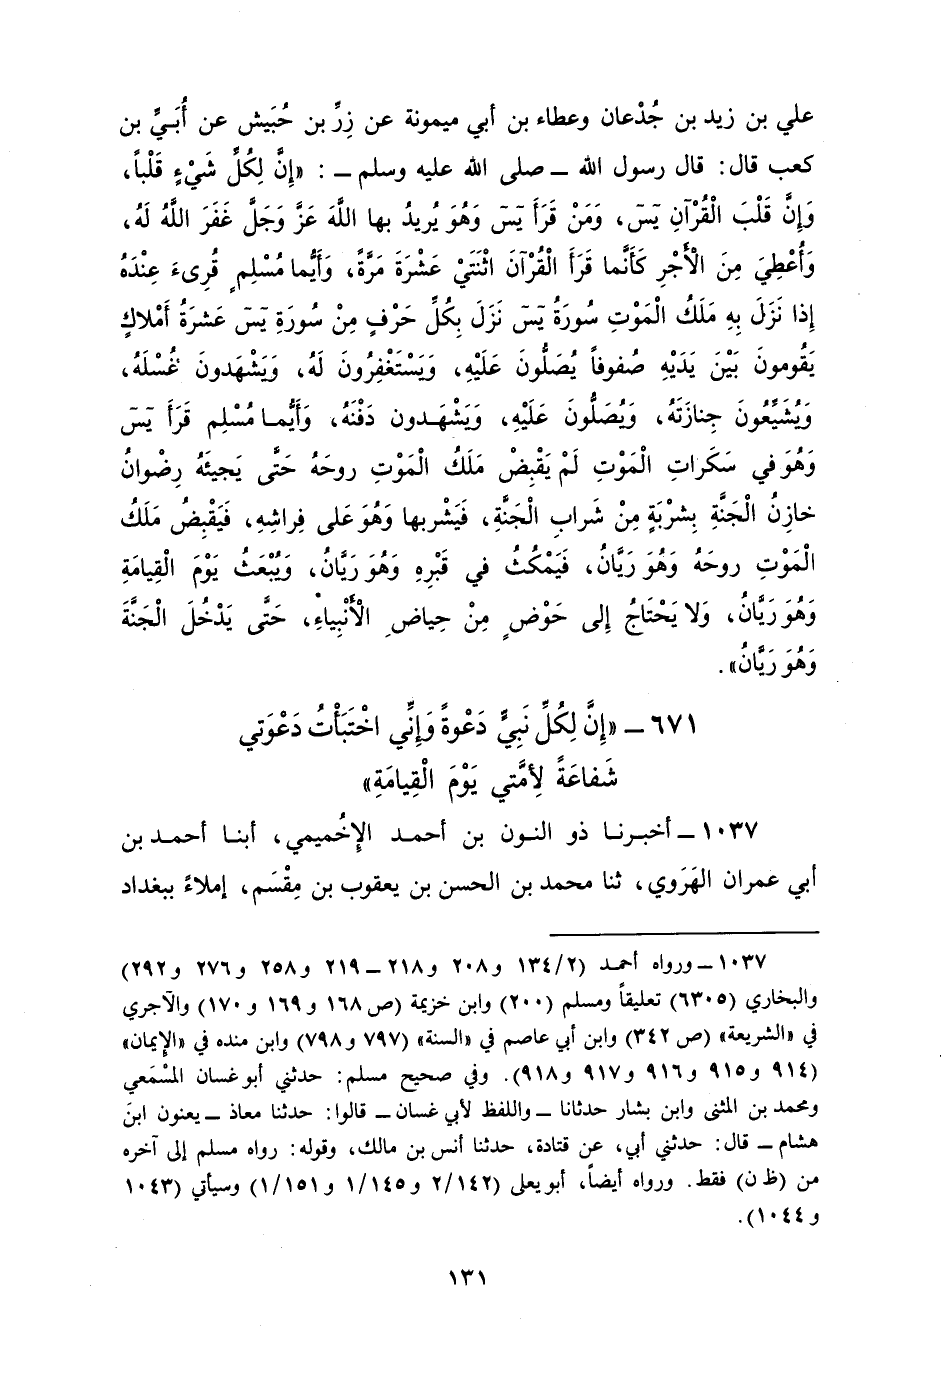 علي بن زيد بن جُدْعان وعطاء بن أبي ميمونة عن زِرِّ بن حُبَيش عن أُبَيِّ بن
كعب قال: قال رسول الله ــ صلى الله عليه وسلم ــ : «إِنَّ لِكُلِّ شَيْءٍ قَلْباً،
وَإِنَّ قَلْبَ الْقُرْآنِ يَسٓ، وَمَنْ قَرَأَ يَسٓ وَهُوَ يُرِيدُ بها اللَّهَ عَزَّ وَجَلَّ غَفَرَ اللَّهُ لَهُ،
وَأُعْطِيَ مِنَ الْأَجْرِ كَأَنَّما قَرَأَ الْقُرْآنَ اثْنَتَيْ عَشْرَةَ مَرَّةً، وَأَيُّما مُسْلِمٍ قُرِىءَ عِنْدَهُ
إِذا نَزَلَ بِهِ مَلَكُ الْمَوْتِ سُورَةُ يَسٓ نَزَلَ بِكُلِّ حَرْفٍ مِنْ سُورَةِ يَسٓ عَشرَةُ أَمْلاكٍ
يَقُومونَ بَيْنَ يَدَيْهِ صُفوفاً يُصَلُّونَ عَلَيْهِ، وَيَسْتَغْفِرُونَ لَهُ، وَيَشْهَدونَ غُسْلَهُ،
وَيُشَيِّعُونَ جِنازَتَهُ، وَيُصَلُّونَ عَلَيْهِ، وَيَشْهَدون دَفْنَهُ، وَأَيُّما مُسْلِمٍ قَرَأَ يَسٓ
وَهُوَ في سَكَراتِ الْمَوْتِ لَمْ يَقْبِضْ مَلَكُ الْمَوْتِ روحَهُ حَتَّى يَجيئَهُ رِضْوانُ
خازِنُ الْجَنَّةِ بِشَرْبَةٍ مِنْ شَرابِ الْجَنَّةِ، فَيَشْربها وَهُوَ عَلى فِراشِهِ، فَيَقْبِضُ مَلَكُ
الْمَوْتِ روحَهُ وَهُوَ رَيَّانُ، فَيَمْكُثُ في قَبْرِهِ وَهُوَ رَيَّانُ، وَيُبْعَثُ يَوْمَ الْقِيامَةِ
وَهُوَ رَيَّانُ، وَلا يَحْتَاجُ إِلى حَوْضٍ مِنْ حِياضِ الأَنْبِياءِ، حَتَّى يَدْخُلَ الْجَنَّةَ
وَهُوَ رَيَّانُ».
٦٧١ ــ «إِنَّ لِكُلِّ نَبِيٍّ دَعْوَةً وَإِنِّي اخْتَبَأْتُ دَعْوَتي
شَفاعَةً لِأُمَّتي يَوْمَ الْقِيامَةِ»
١٠٣٧ ــ أخبرنا ذو النون بن أحمد الإِخْميمي، أبنا أحمد بن
أبي عمران الهَرَوي، ثنا محمد بن الحسن بن يعقوب بن مِقْسَم، إملاءً ببغداد
١٠٣٧ ــ ورواه أحمد (٢/١٣٤ و٢٠٨ و٢١٨ ــ ٢١٩ و٢٥٨ و٢٧٦ و٢٩٢)
والبخاري (٦٣٠٥) تعليقاً ومسلم (٢٠٠) وابن خزيمة (ص ١٦٨ و ١٦٩ و ١٧٠) والآجري
في «الشريعة» (ص ٣٤٢) وابن أبي عاصم في «السنة» (٧٩٧ و٧٩٨) وابن منده في «الإيمان»
(٩١٤ و٩١٥ و٩١٦ و٩١٧ و٩١٨). وفي صحيح مسلم: حدثني أبو غسان المسْمَعي
ومحمد بن المثنى وابن بشار حدثانا ــ واللفظ لأبي غسان ــ قالوا: حدثنا معاذ ــ يعنون ابنَ
هشام ــ قال: حدثني أبي، عن قتادة، حدثنا أنس بن مالك، وقوله: رواه مسلم إلى آخره
من (ظ ن) فقط. ورواه أيضاً، أبو يعلى (٢/١٤٢ و١/١٤٥ و١/١٥١) وسيأتي (١٠٤٣
و١٠٤٤).
١٣١